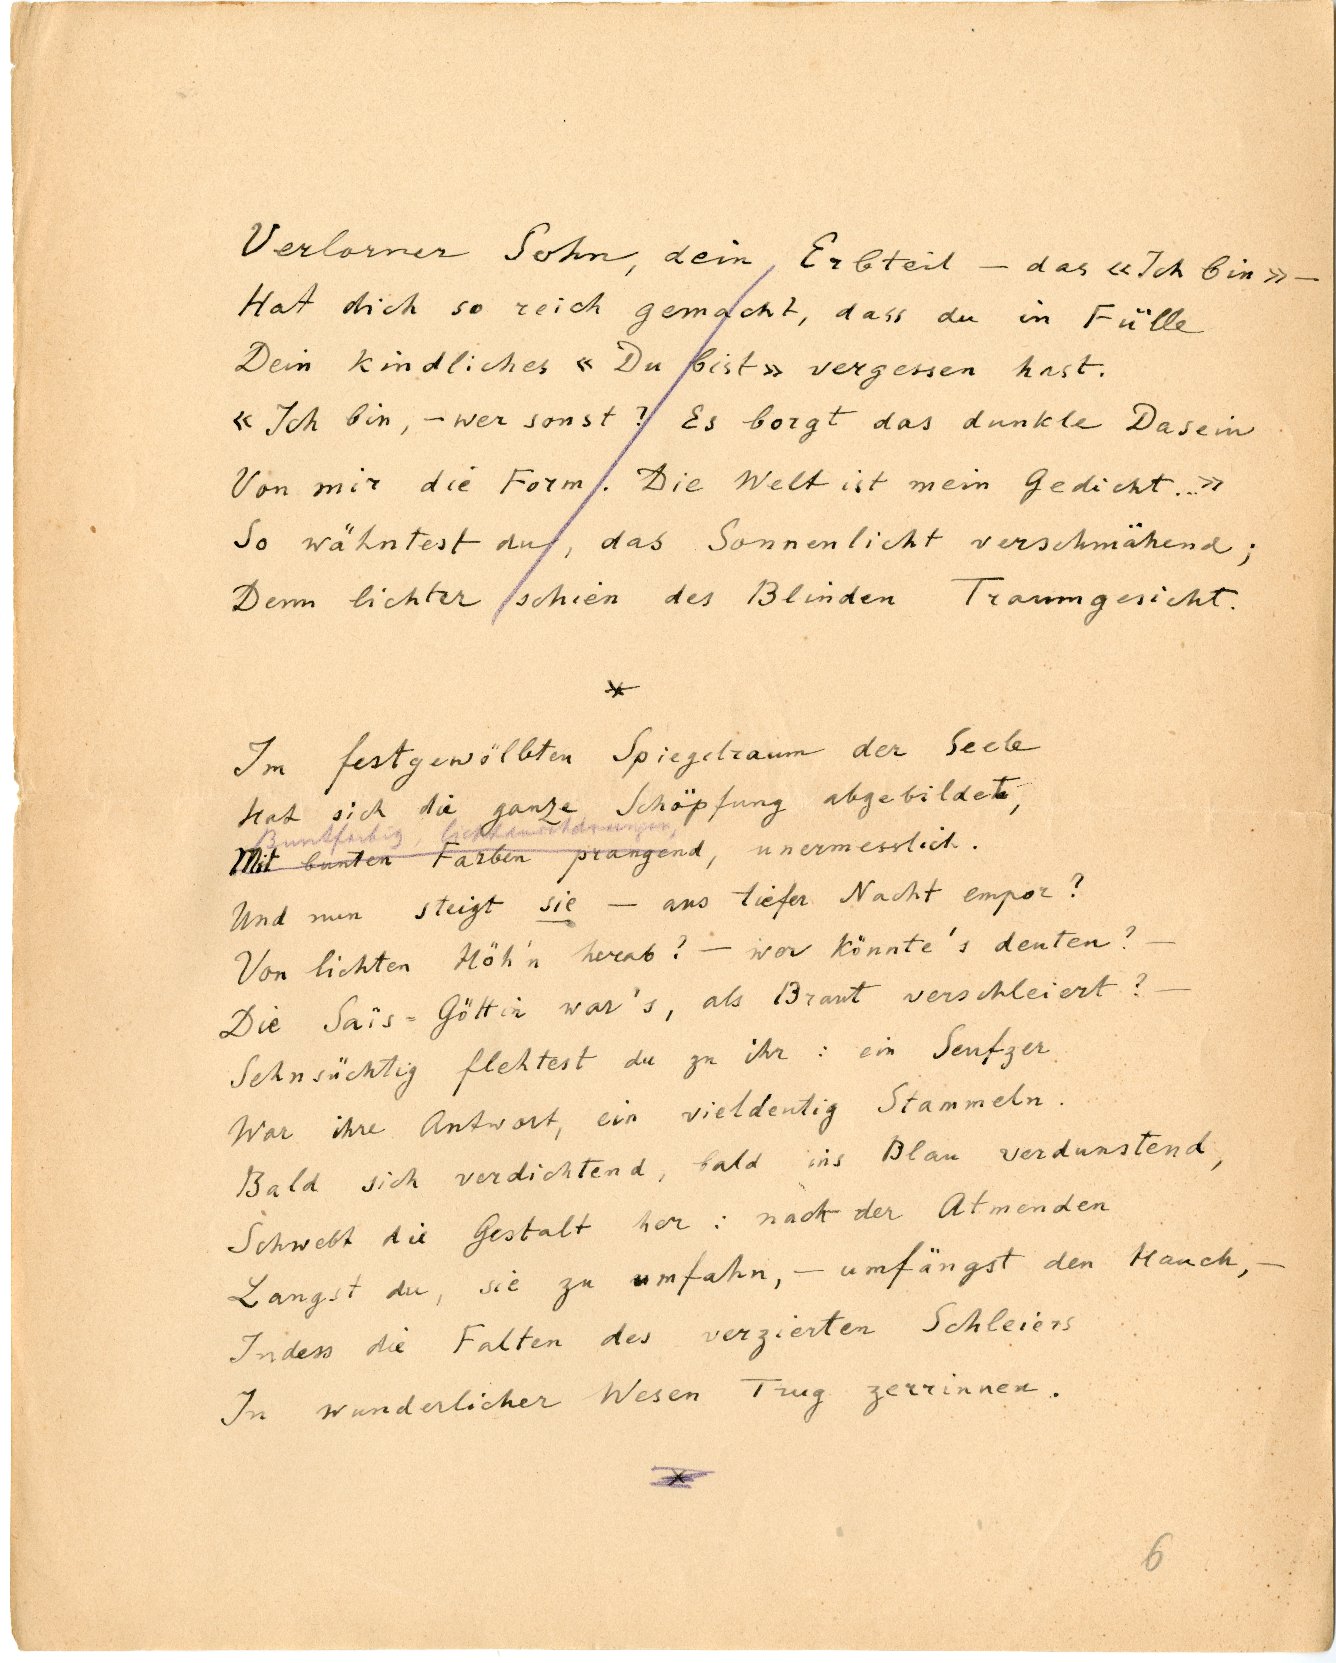 Verlorner Sohn, dein Erbteil – das «Ich bin» –
Hat dich so reich gemacht, dass du in Fülle
Dein kindliches «Du bist» vergessen hast.
«Ich bin, – wer sonst? Es borgt das dunkle Dasein
Von mir die Form. Die Welt ist mein Gedicht...»
So wähntest du, das Sonnenlicht verschmähend;
Denn lichter schien des Blinden Traumgesicht.
*
Im festgewölbten Spiegelraum der Seele
Hat sich die ganze Schöpfung abgebildet,
Buntfarbig, lichtdurchdrungen,
Mit bunten Farben prangend, unermesslich.
Und nun steigt sie – aus tiefer Nacht empor?
Von lichten Höh'n herab? – wer könnte's deuten? –
Die Saïs-Göttin war's, als Braut verschleiert? –
Sehnsüchtig flehtest du zu ihr: ein Seufzer
War ihre Antwort, ein vieldeutig Stammeln.
Bald sich verdichtend, bald ins Blau verdunstend,
Schwebt die Gestalt her: nach der Atmenden
Langst du, sie zu umfahn, – umfängst den Hauch, –
Indess die Falten des verzierten Schleiers
In wunderlicher Wesen Trug zerrinnen.
*
6